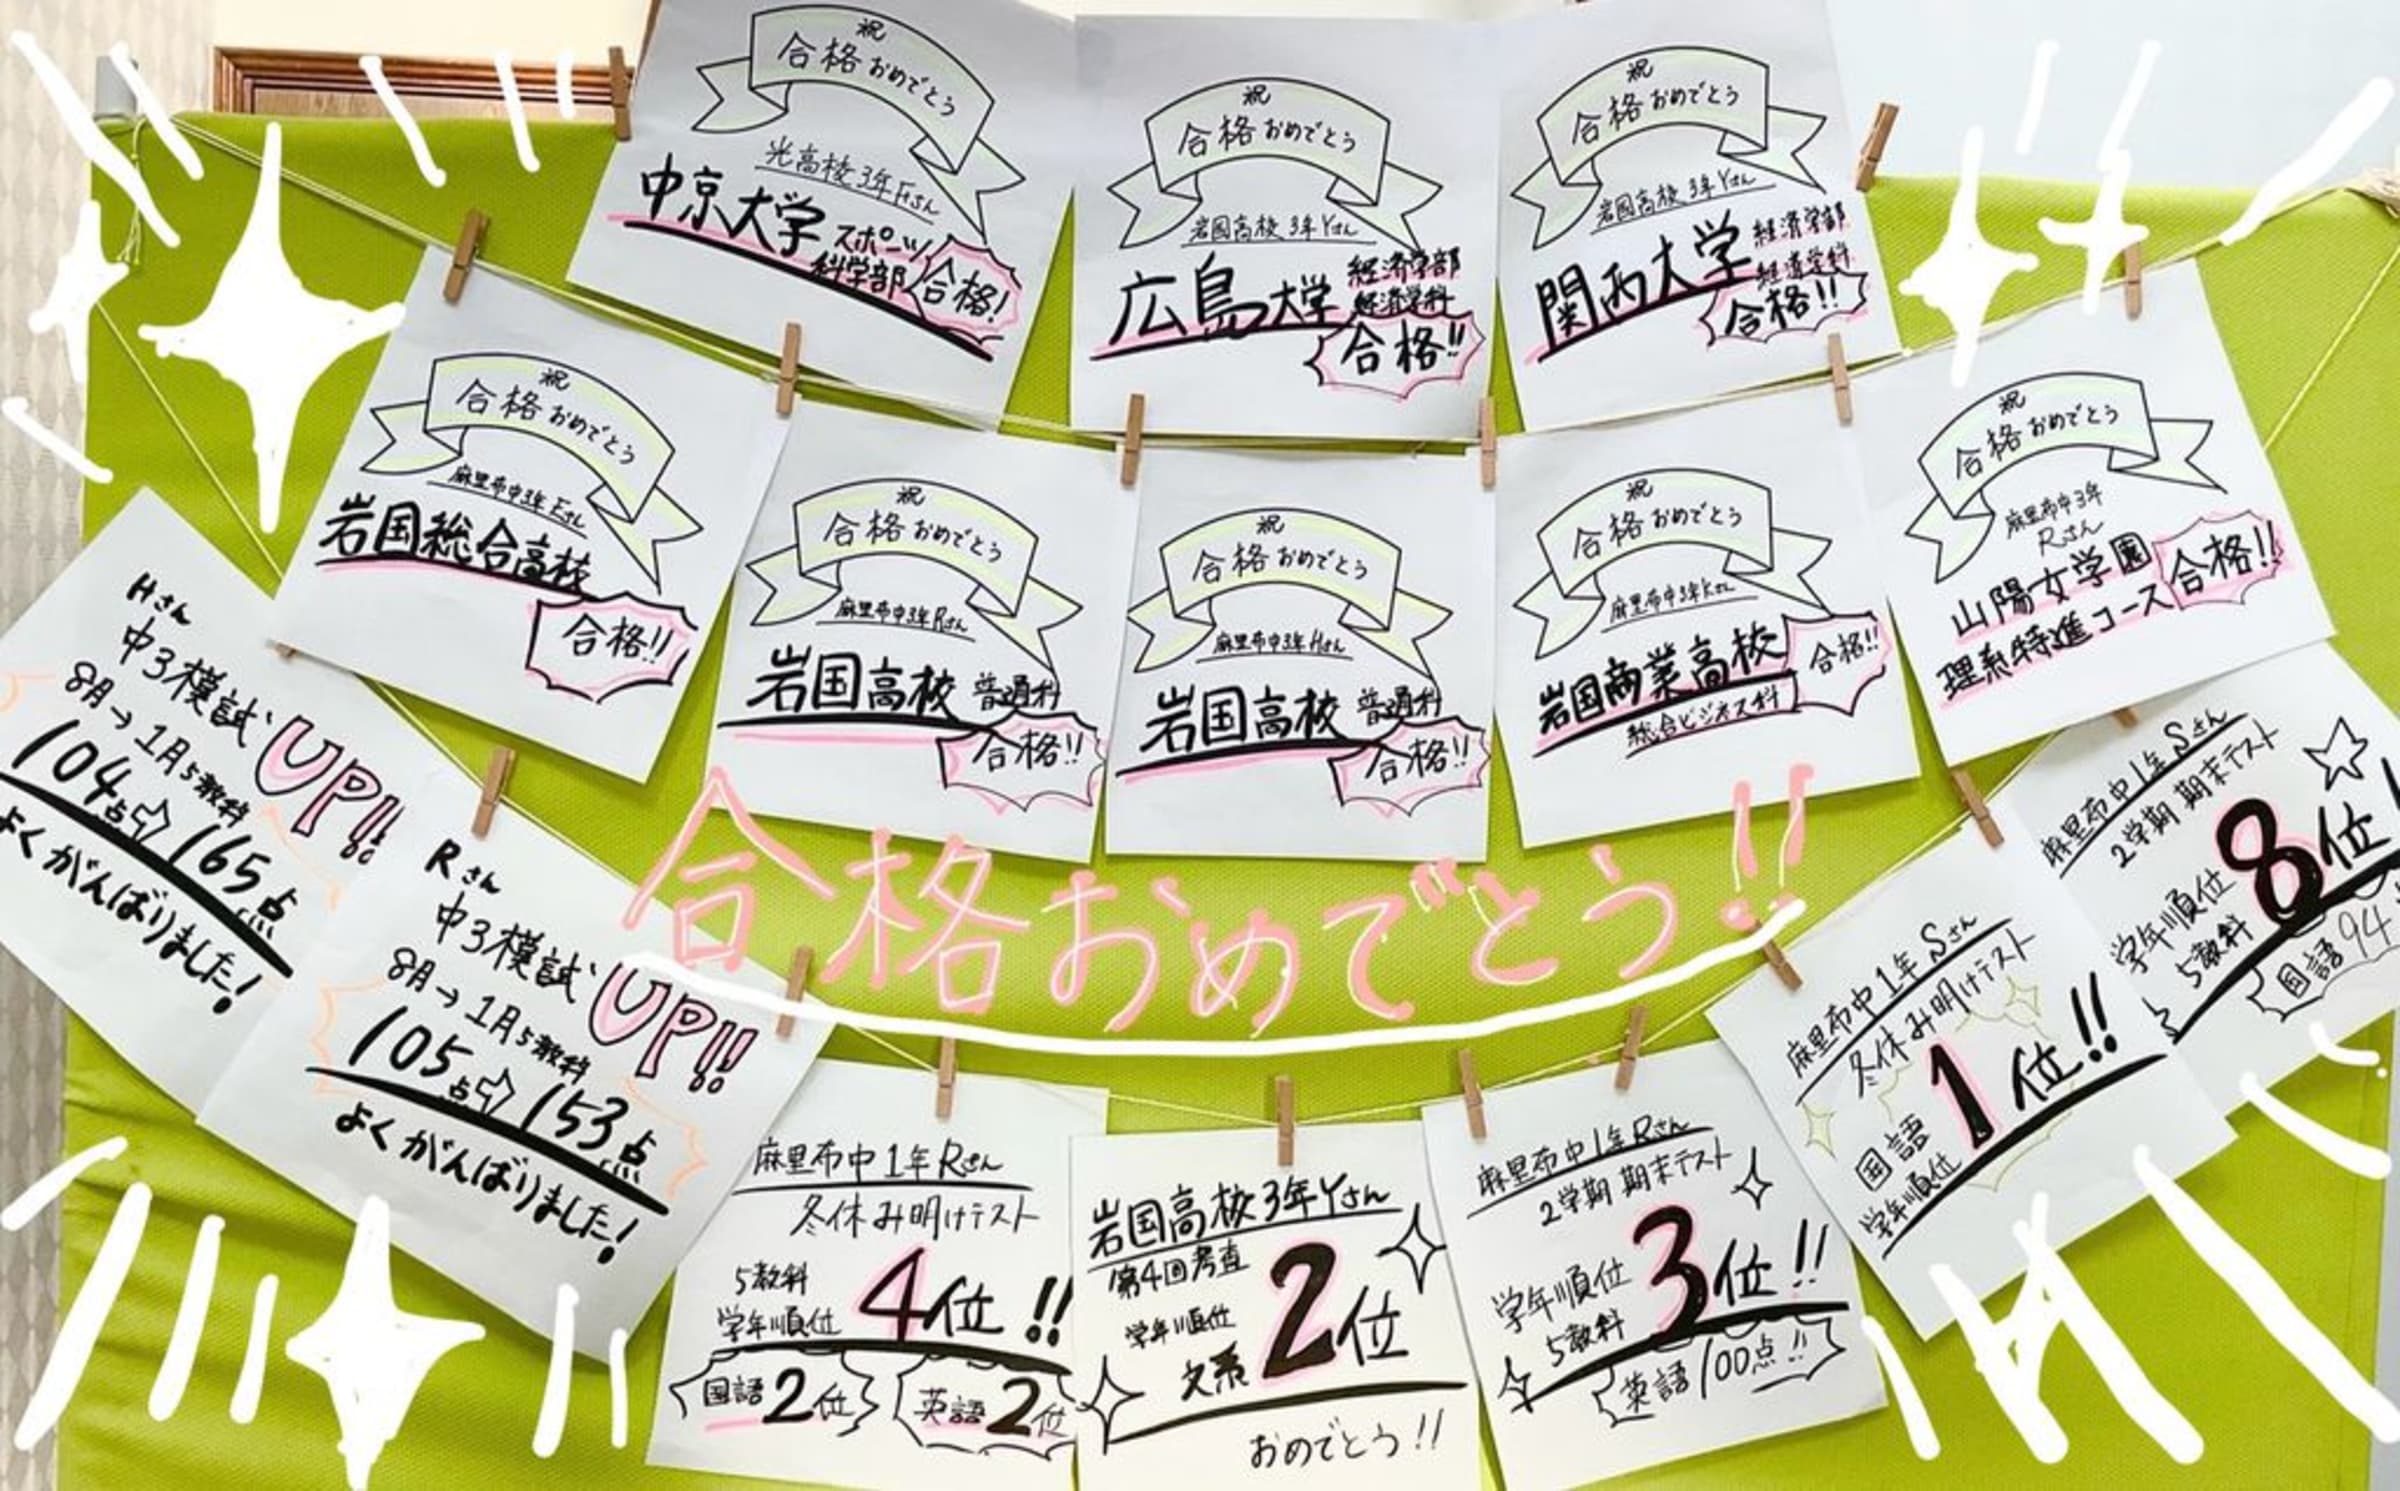 祝
合格おめでとう
光高校3年Fさん
中京大学 スポーツ
科学部 合格!
祝
合格おめでとう
岩国高校3年Yさん
広島大学 経済学部
経済学科
合格!!
祝
合格おめでとう
岩国高校3年Yさん
関西大学 経済学部
経済学科
合格!!
祝
合格おめでとう
麻里布中3年Eさん
岩国総合高校
合格!!
祝
合格おめでとう
麻里布中3年Rさん
岩国高校 普通科
合格!!
祝
合格おめでとう
麻里布中3年Hさん
岩国高校 普通科
合格!!
祝
合格おめでとう
麻里布中3年Kさん
岩国商業高校
総合ビジネス科
合格!!
祝
合格おめでとう
麻里布中3年
Rさん
山陽女学園
理系特進コース
合格!!
合格おめでとう!!
Hさん
中3模試 UP!!
8月→1月5教科
104点⇨165点
よくがんばりました!
Rさん
中3模試 UP!!
8月→1月5教科
105点⇨153点
よくがんばりました!
麻里布中1年Rさん
冬休み明けテスト
5教科
学年順位 4位!!
国語2位 英語2位
岩国高校3年Yさん
第4回考査
学年順位
文系 2位
おめでとう!!
麻里布中1年Rさん
2学期期末テスト
学年順位
5教科 3位!!
英語100点!!
麻里布中1年Sさん
冬休み明けテスト
国語
学年順位 1位!!
麻里布中1年Sさん
2学期期末テスト
学年順位
5教科 8位!
国語94